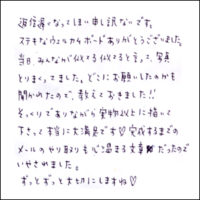 返信遅くなってしまい申し訳ないです。
ステキなウェルカムボードありがとうございました。
当日みんなが似てる似てると言って、写真
とりまくってました。どこにお願いしたのかも
聞かれたので、教えておきました!!
そっくりでありながら実物以上に描いて
下さって本当に大満足です♡完成するまでの
メールのやり取りも心温まる文章だったので
いやされました。
ずっとずっと大切にしますね♡